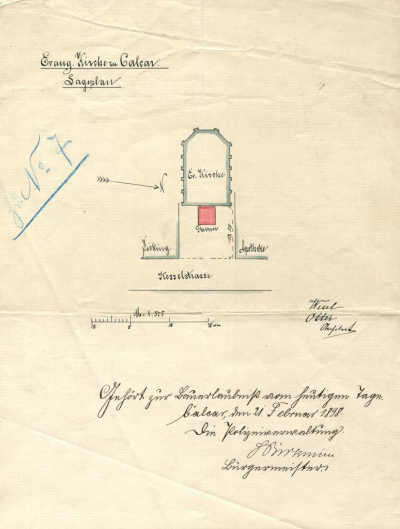 Evang. Kirche zu Calcar.
Lageplan
zu No 7
N
Ev. Kirche
Turm
Apotheke
Kesselstrasse
M. 1:500
Wesel
Otter
Architect
Gehört zur Bauerlaubniß vom heutigen Tage.
Calcar, den 21. Februar 1898.
Die Polizeiverwaltung.
Bürgermeister.